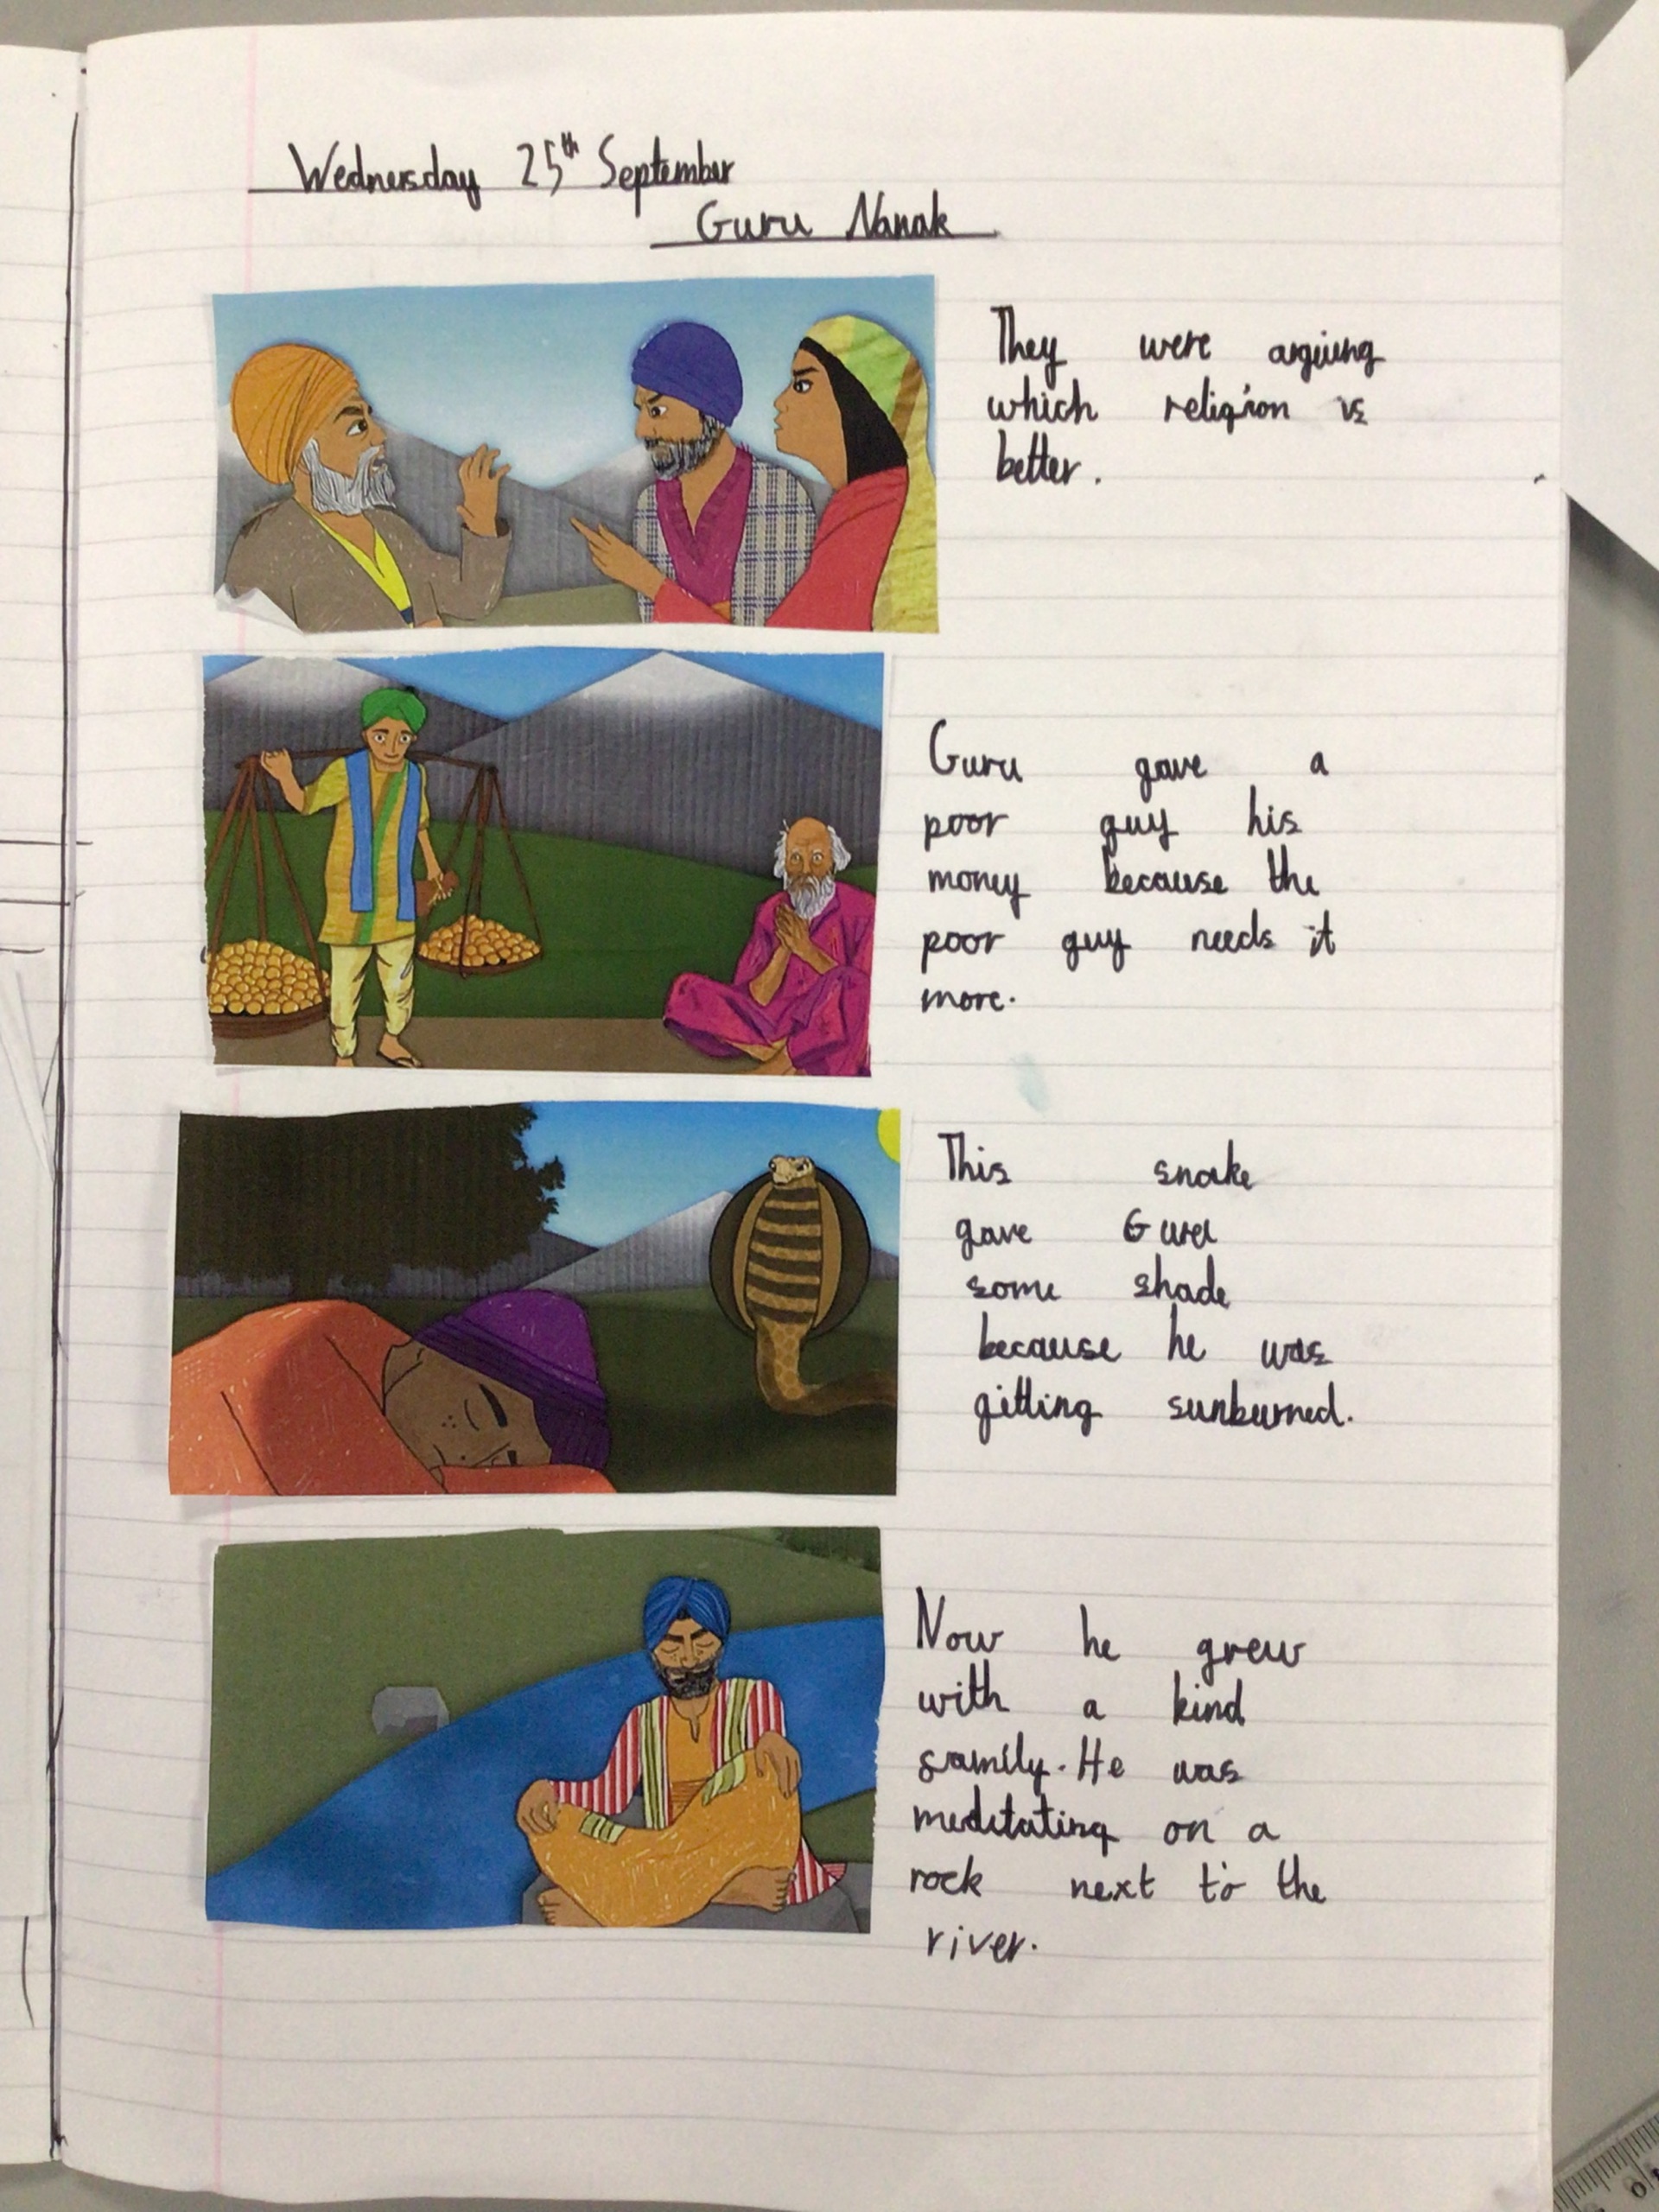 Wednesday 25th September
Guru Nanak
They were arguing
which religion is
better.
Guru gave a
poor guy his
money because the
poor guy needs it
more.
This snake
gave Guru
some shade
because he was
gitting sunburned.
Now he grew
with a kind
family. He was
meditating on a
rock next to the
river.